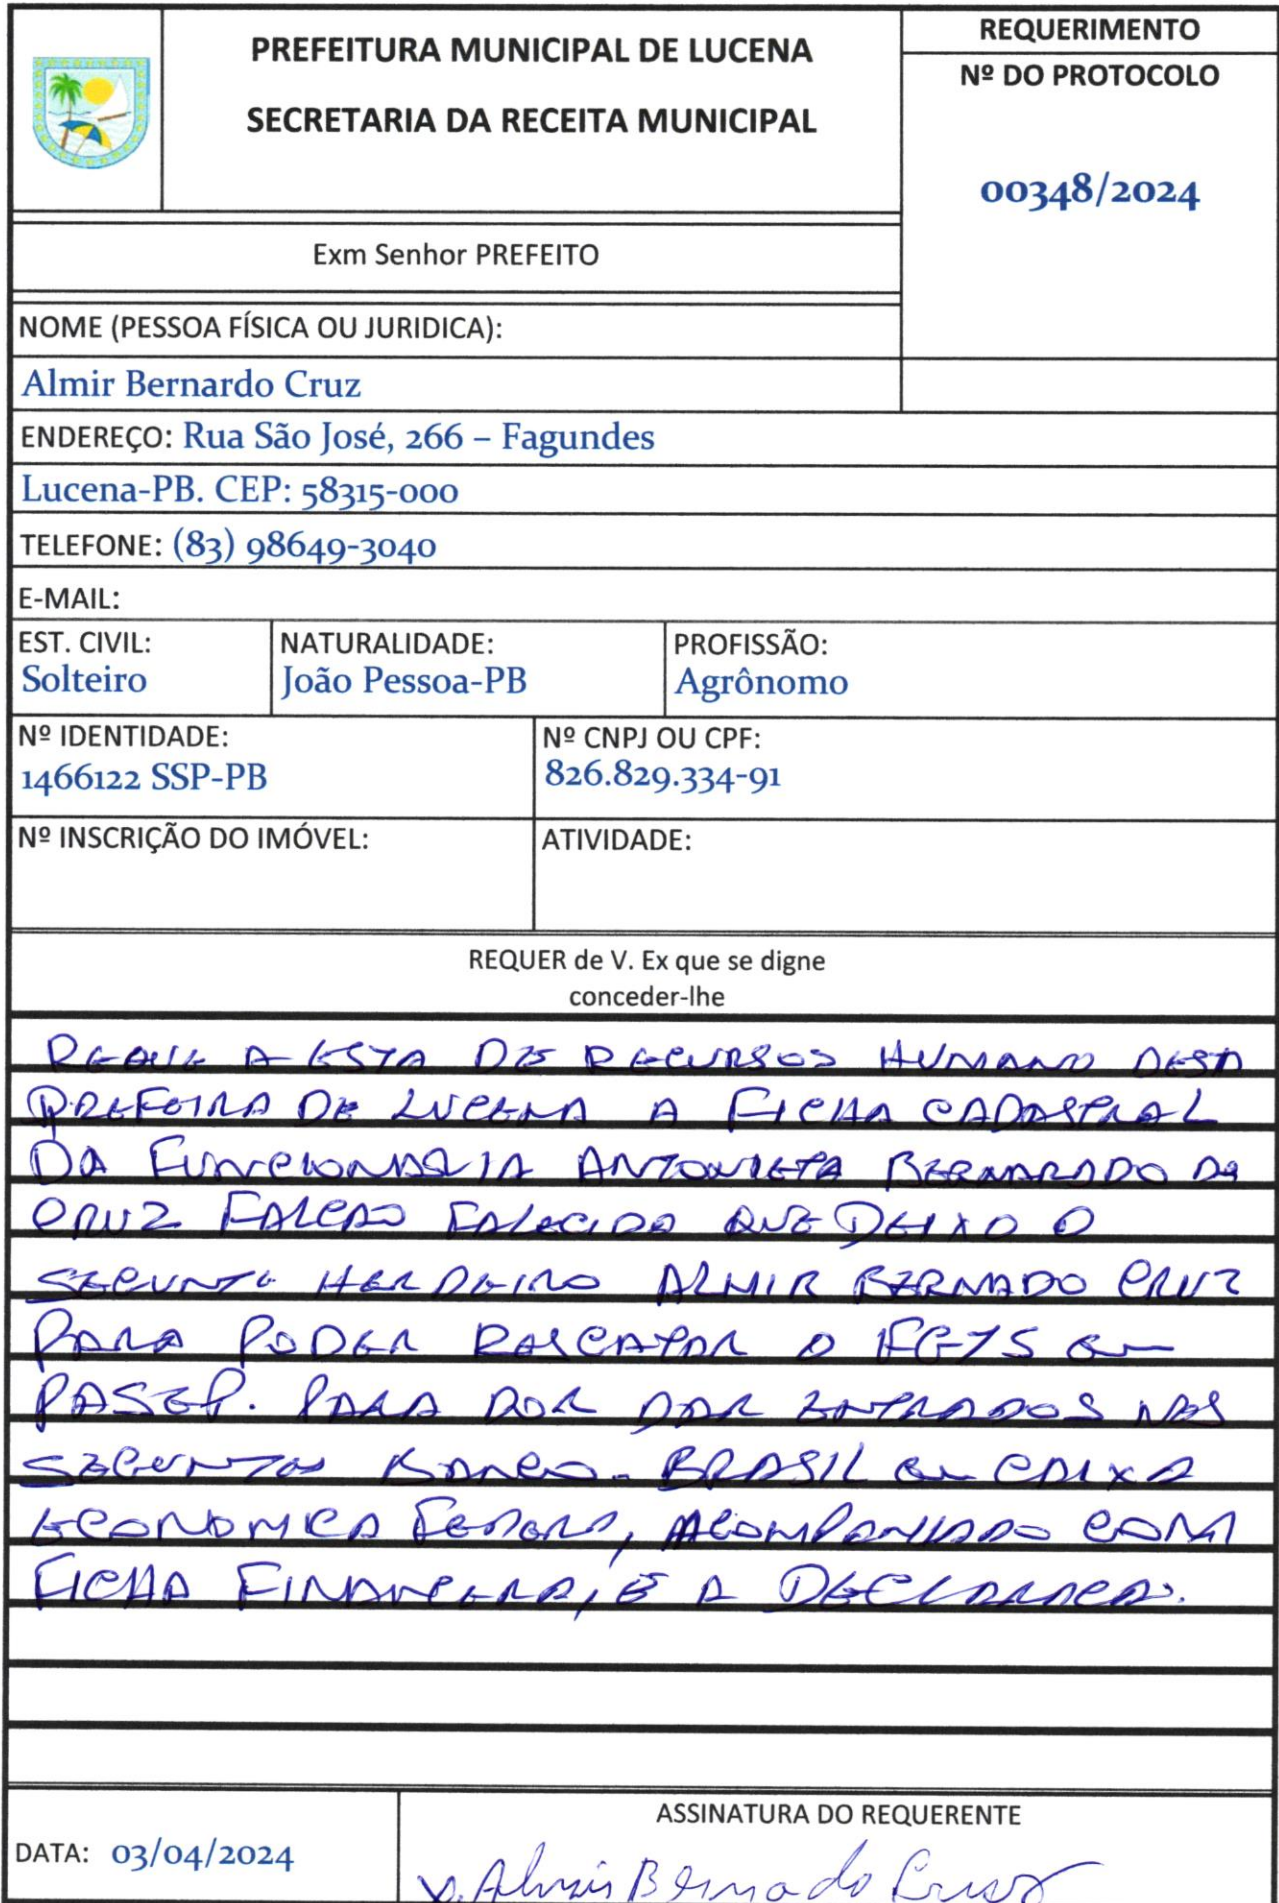 PREFEITURA MUNICIPAL DE LUCENA
SECRETARIA DA RECEITA MUNICIPAL
REQUERIMENTO
Nº DO PROTOCOLO
00348/2024
Exm Senhor PREFEITO
NOME (PESSOA FÍSICA OU JURIDICA):
Almir Bernardo Cruz
ENDEREÇO: Rua São José, 266 – Fagundes
Lucena-PB. CEP: 58315-000
TELEFONE: (83) 98649-3040
E-MAIL:
EST. CIVIL:
Solteiro
NATURALIDADE:
João Pessoa-PB
PROFISSÃO:
Agrônomo
Nº IDENTIDADE:
1466122 SSP-PB
Nº CNPJ OU CPF:
826.829.334-91
Nº INSCRIÇÃO DO IMÓVEL:
ATIVIDADE:
REQUER de V. Ex que se digne
conceder-lhe
A ESTA DE RECURSOS HUMANO DESTA
DE LUCENA A FICHA CADASTRAL
DA FUNCIONARIA ANTONIETA BERNARDO DA
CRUZ FALCAO FALECIDO QUE DEIXO O
HERDEIRO ALMIR BERNADO CRUZ
PARA PODER O FGTS
PASEP. PARA DAR ENTRADOS NAS
BRASIL CAIXA
ECONOMICA ACOMPANHADO COM
FICHA FINANCERA, E A
DATA: 03/04/2024
ASSINATURA DO REQUERENTE
Almir Bernado Cruz